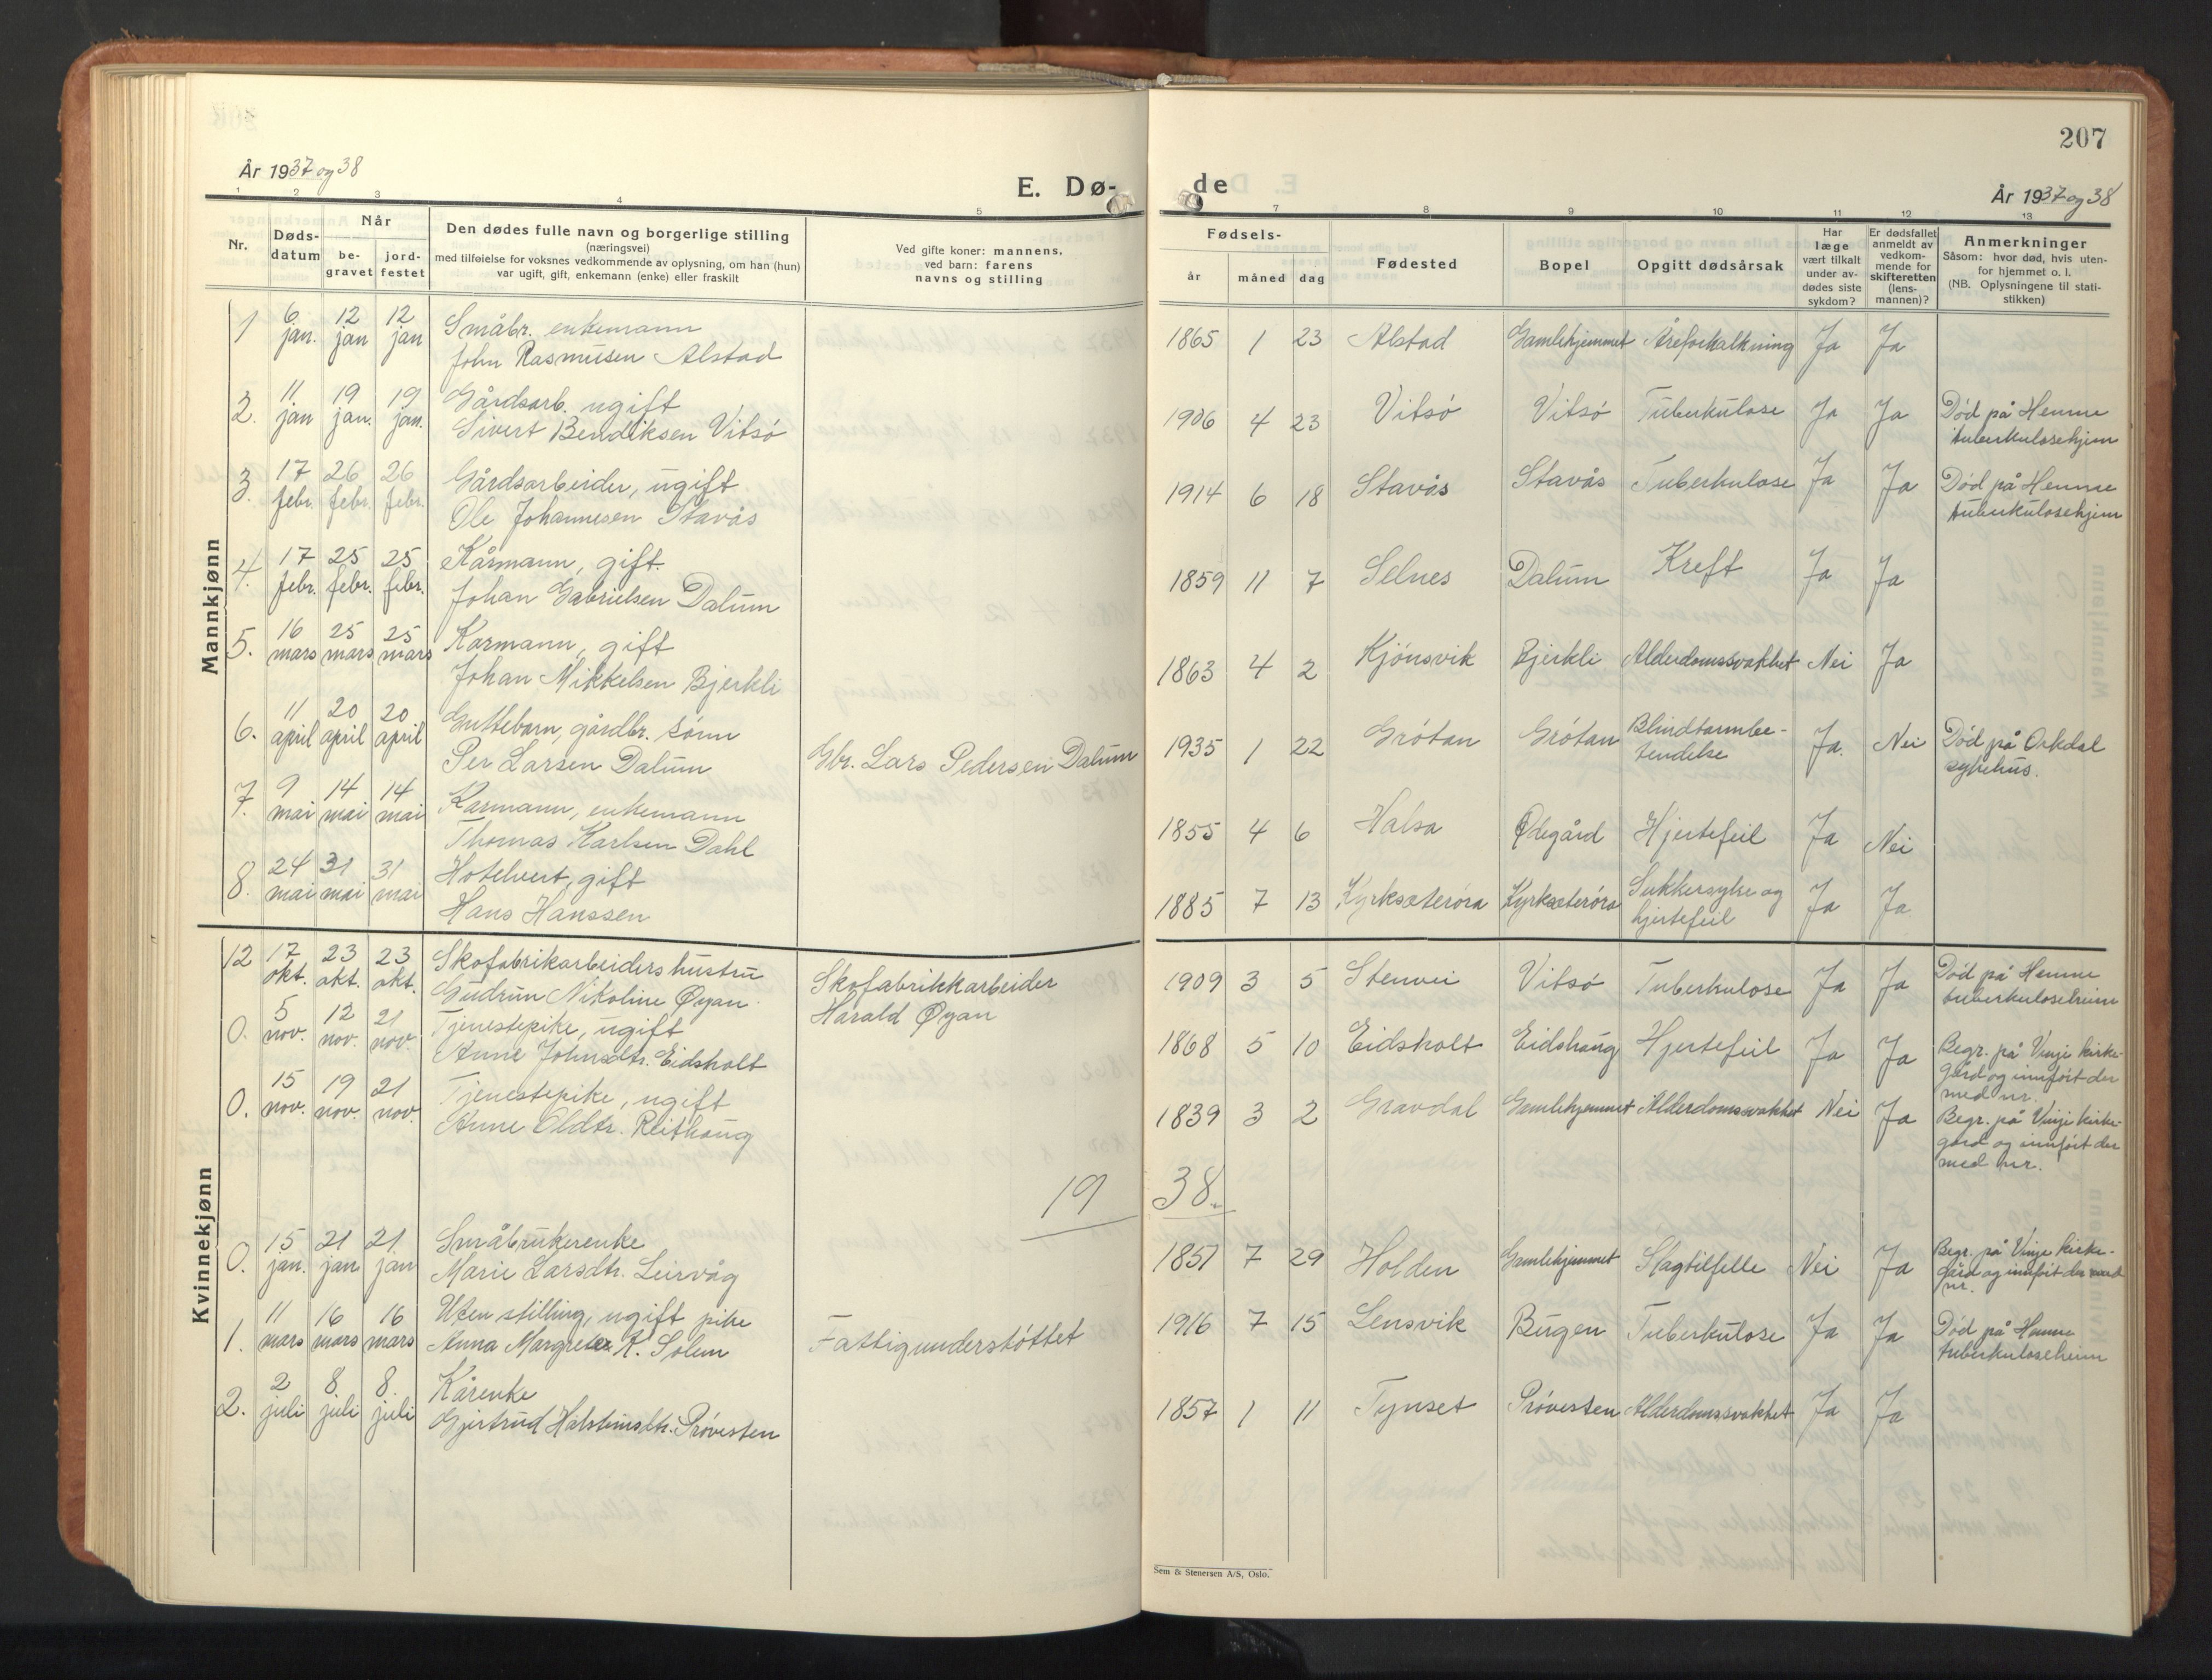 207
År 1937 og 38
E. Dø-
de
År 1937 og 38
1 2 3 4 5 7 8 9 10 11 12 13
Nr.
Døds-
datum
Når
be-
gravet
jord-
festet
Den dødes fulle navn og borgerlige stilling
(næringsvei)
med tilføielse for voksnes vedkommende av oplysning, om han (hun)
var ugift, gift, enkemann (enke) eller fraskilt
Ved gifte koner: mannens,
ved barn: farens
navns og stilling
Fødsels-
år måned dag
Fødested
Bopel
Opgitt dødsårsak
Har
læge
vært tilkalt
under av-
dødes siste
sykdom?
Er dødsfallet
anmeldt av
vedkom-
mende for
skifteretten
(lens-
mannen)?
Anmerkninger
Såsom: hvor død, hvis uten-
for hjemmet o. l.
(NB. Oplysningene til stati-
stikken)
Mannkjønn
1 6 jan. 12 jan 12 jan Småbr. enkemann
John Rasmusen Alstad
1865 1 23 Alstad Gamlehjemmet Åreforkalkning Ja Ja
2. 11 jan 19 jan. 19 jan. Gårdsarb. ugift
Sivert Bendiksen Vitsö
1906 4 23 Vitsö Vitsö Tuberkulose Ja Ja Död på Hemne
tuberkulosehjem
3. 17 febr. 26 febr. 26 febr. Gårdsarbeider, ugift
Ole Johannesen Stavås
1914 6 18 Stavås Stavås Tuberkulose Ja Ja Död på Hemne
tuberkulosehjem
4. 17 febr. 25 febr. 25 febr. Kårmann, gift.
Johan Gabrielsen Dalum
1859 11 7 Selnes Dalum Kreft Ja Ja
5. 16 mars 25 mars 25 mars Karmann, gift
Johan Mikkelsen Bjerkli
1863 4 2 Kjönsvik Bjerkli Alderdomssvakhet Nei Ja
6. 11 april 20 april 20 april Guttebarn, gårdbr. sönn
Per Larsen Dalum
Gbr. Lars Pedersen Dalum
1935 1 22 Grötan Grötan Blindtarmbe-
tendelse Ja. Nei Död på Orkdal
sykehus.
7. 9 mai 14 mai 14 mai Karmann, enkemann
Thomas Karlsen Dahl
1855 4 6 Halsa Ødegård Hjertefeil Ja Nei
8. 24 mai 31 mai 31 mai Hotelvert, gift
Hans Hanssen
1885 7 13 Kyrksæteröra Kyrksæteröra Sukkersyke og
hjertefeil Ja Ja
Kvinnekjønn
12 17 okt. 23 okt. 23 okt. Skofabrikarbeiders hustru
Gudrun Nikoline Øyan.
Skofabrikkarbeider
Harald Øyan
1909 3 5 Stenvei Vitsö Tuberkulose Ja Ja Död på Hemne
tuberkuloseheim
0. 5 nov. 12 nov. 21 nov. Tjenestepike, ugift
Anne Johnsdtr. Eidsholt
1868 5 10 Eidsholt Eidshaug Hjertefeil Ja Ja Begr. på Vinje kirke-
gård og innfört der
med nr.
0. 15 nov. 19 nov. 21 nov Tjenestepike, ugift
Anne Oldtr. Reithaug
1839 3 2 Gravdal Gamlehjemmet Alderdomssvakhet Nei Ja Begr. på Vinje kirke-
gård og innfört der
med nr.
19 38.
0. 15 jan. 21 jan 21 jan Småbrukerenke
Marie Larsdtr. Leirvåg
1851 7 29 Holden Gamlehjemmet Slagtilfelle Nei Ja Begr. på Vinje kirke-
gård og innfört der med
nr.
1. 11 mars 16 mars 16 mars Uten stilling, ugift pike
Anna Margrete K. Solem
Fattigunderstöttet
1916 7 15 Lensvik Bugen Tuberkulose Ja Ja Död på Hemne
tuberkuloseheim
2. 2 juli 8 juli 8. juli Kårenke
Gjertrud Halsteinsdtr. Prövesten
1857 1 11 Tynset Prövesten Alderdomssvakhet Ja Ja
Sem & Stenersen A/S, Oslo.